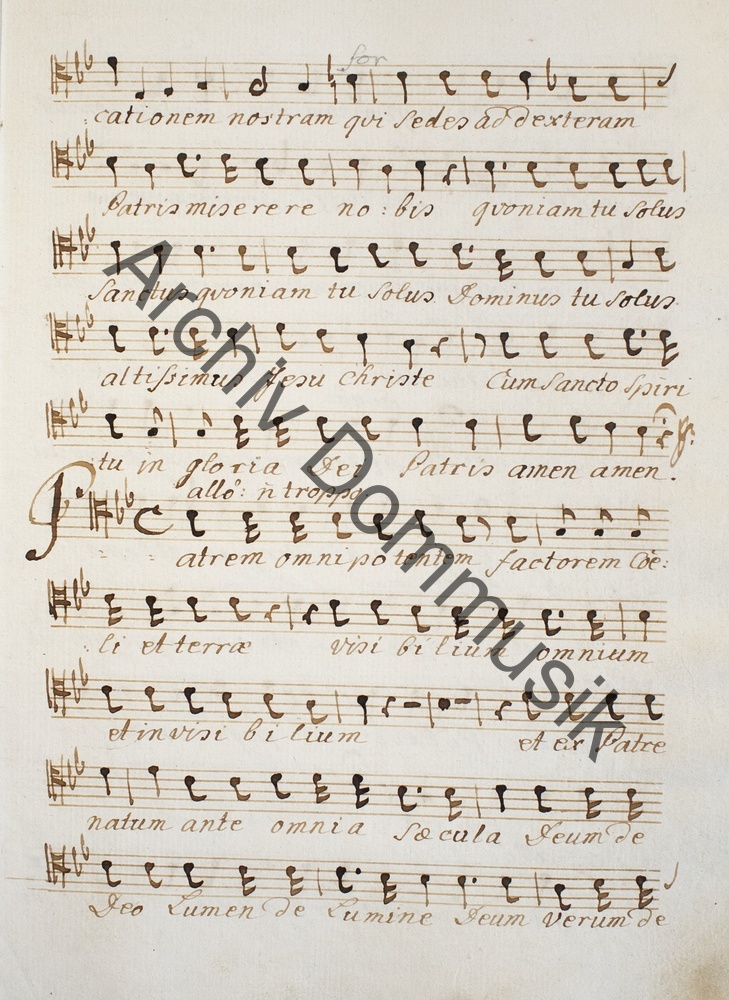 for
cationem nostram qvi sedes ad dexteram
Patris miserere no : bis qvoniam tu solus
Sanctus qvoniam tu solus Dominus tu solus
altissimus Jesu Christe Cum Sancto Spiri
tu in gloria Dei Patris amen amen.
allo: n troppo
Patrem omnipotentem factorem Coe:
li et terræ visi bi lium omnium
et in visi bi lium et ex Patre
natum ante omnia sæcula Deum de
Deo Lumen de Lumine Deum verum de
Archiv Dommusik